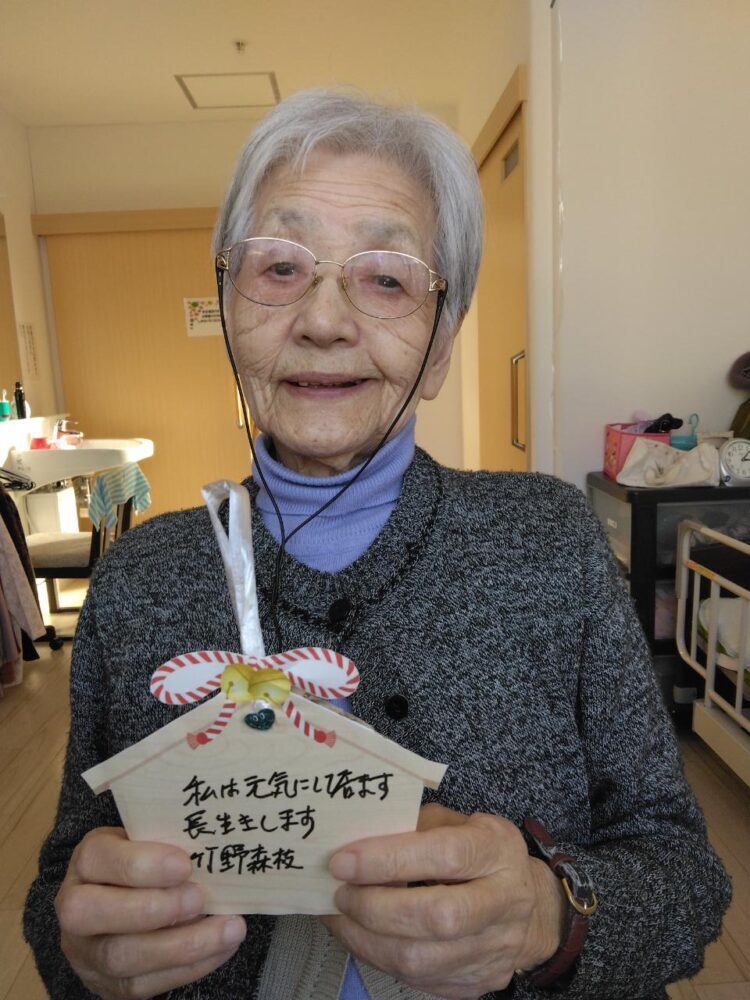 私は元気にして居ます
長生きします
竹野森枝